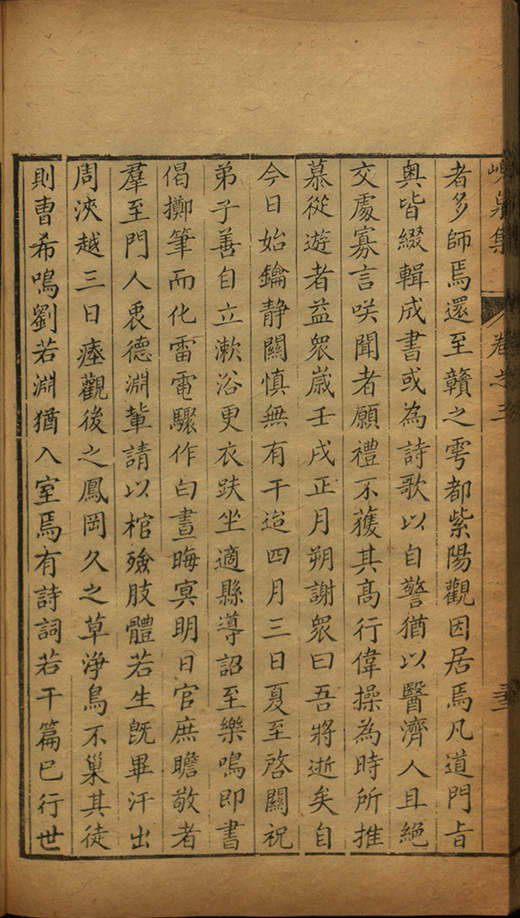 峴泉集 卷之三
者多師焉還至贛之雩都紫陽觀因居焉凡道門旨
奥皆綴輯成書或為詩歌以自警猶以醫濟人且絕
交處寡言咲聞者願禮不獲其髙行偉操為時所推
慕從遊者益衆歲壬戌正月朔謝衆曰吾將逝矣自
今日始鑰静關慎無有干迨四月三日夏至啓關祝
弟子善自立漱浴更衣趺坐適縣導詔至樂鳴即書
偈擲筆而化雷電驟作白晝晦冥明日官庶瞻敬者
羣至門人袁德淵軰請以棺殮肢體若生旣畢汗出
周浹越三日瘞觀後之鳳岡久之草淨鳥不巢其徒
則曹希鳴劉若淵猶入室焉有詩詞若干篇已行世